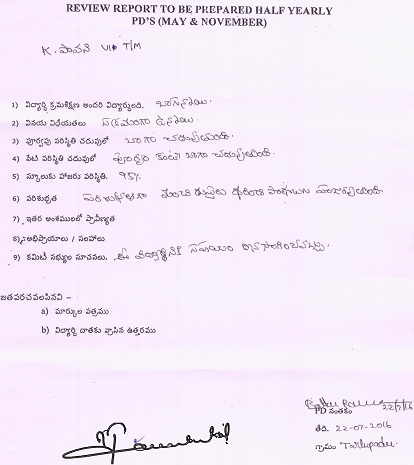 REVIEW REPORT TO BE PREPARED HALF YEARLY
PD'S (MAY & NOVEMBER)
K. పావని VIII T/M
1) విద్యార్థి క్రమశిక్షణ అందరి విద్యార్థులది. బాగున్నాయి.
2) వినయ విధేయతలు సక్రమంగా ఉన్నాయి.
3) పూర్వపు పరిస్థితి చదువులో బాగా చదువుతుంది.
4) నేటి పరిస్థితి చదువులో పూర్వం కంటే బాగా చదువుతుంది.
5) స్కూలుకు హాజరు పరిస్థితి. 95%
6) పరిశుభ్రత
7) ఇతర అంశములలో ప్రావీణ్యత
8) అభిప్రాయాలు / సలహాలు
9) కమిటీ సభ్యుల సూచనలు. ఈ విద్యార్థినికి సహాయం కొనసాగించవచ్చు.
జతపరచవలసినవి –
a) మార్కుల పత్రము
b) విద్యార్థి దాతకు వ్రాసిన ఉత్తరము
22/7/16
PD సంతకం
తేది. 22-07-2016
గ్రామం Tarlupadu.